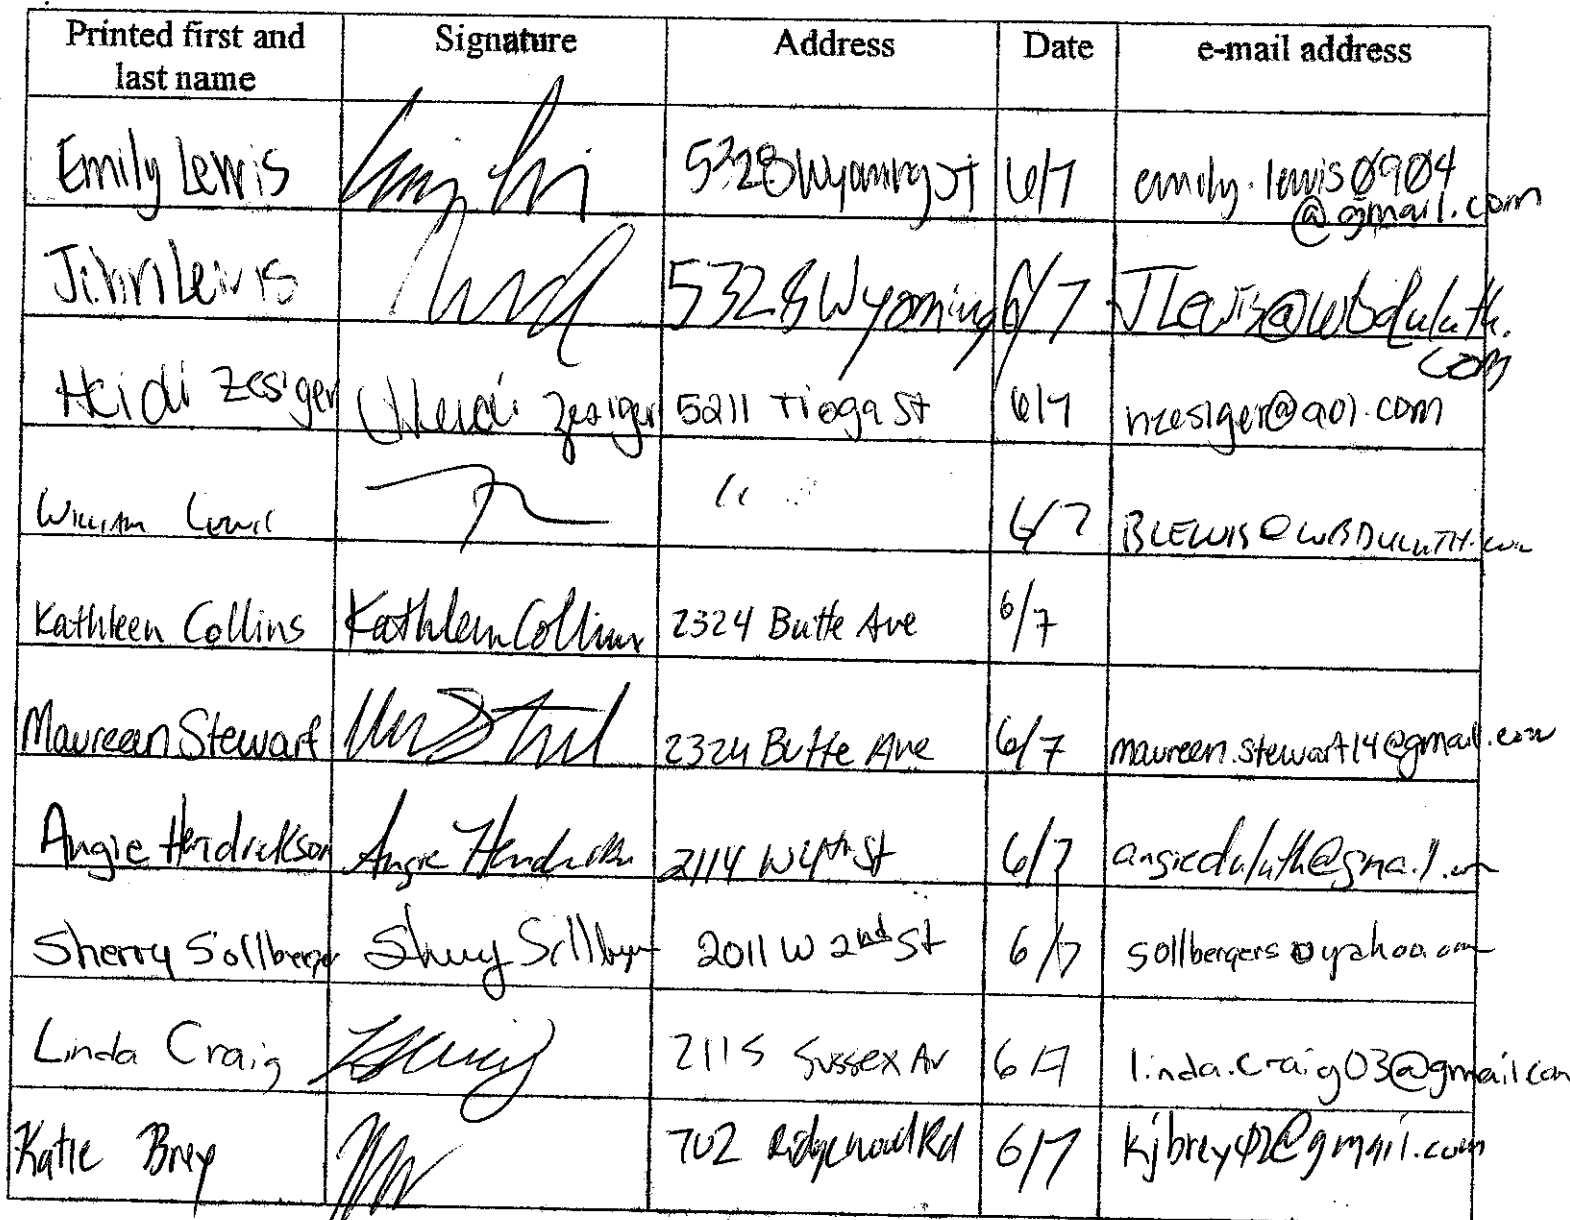 Printed first and last name Signature Address Date e-mail address
Emily Lewis 5328 Wyoming St 6/7 emily.lewis0904@gmail.com
John Lewis 5328 Wyoming 6/7 JLewis@wbduluth.com
Heidi Zesiger Heidi Zesiger 5211 Tioga St 6/7 hzesiger@aol.com
William Lewis " 6/7 BLEWIS@WBDULUTH.com
Kathleen Collins Kathleen Collins 2324 Butte Ave 6/7
Maureen Stewart 2324 Butte Ave 6/7 maureen.stewart14@gmail.com
Angie Hendrickson Angie Hendrickson 2114 W 4th St 6/7 angieduluth@gmail.com
Sherry Sollberger Sherry Sollberger 2011 W 2nd St 6/7 sollbergers@yahoo.com
Linda Craig 2115 Sussex Av 6/7 linda.craig03@gmail.com
Katie Brey 702 Ridgewood Rd 6/7 kjbrey42@gmail.com